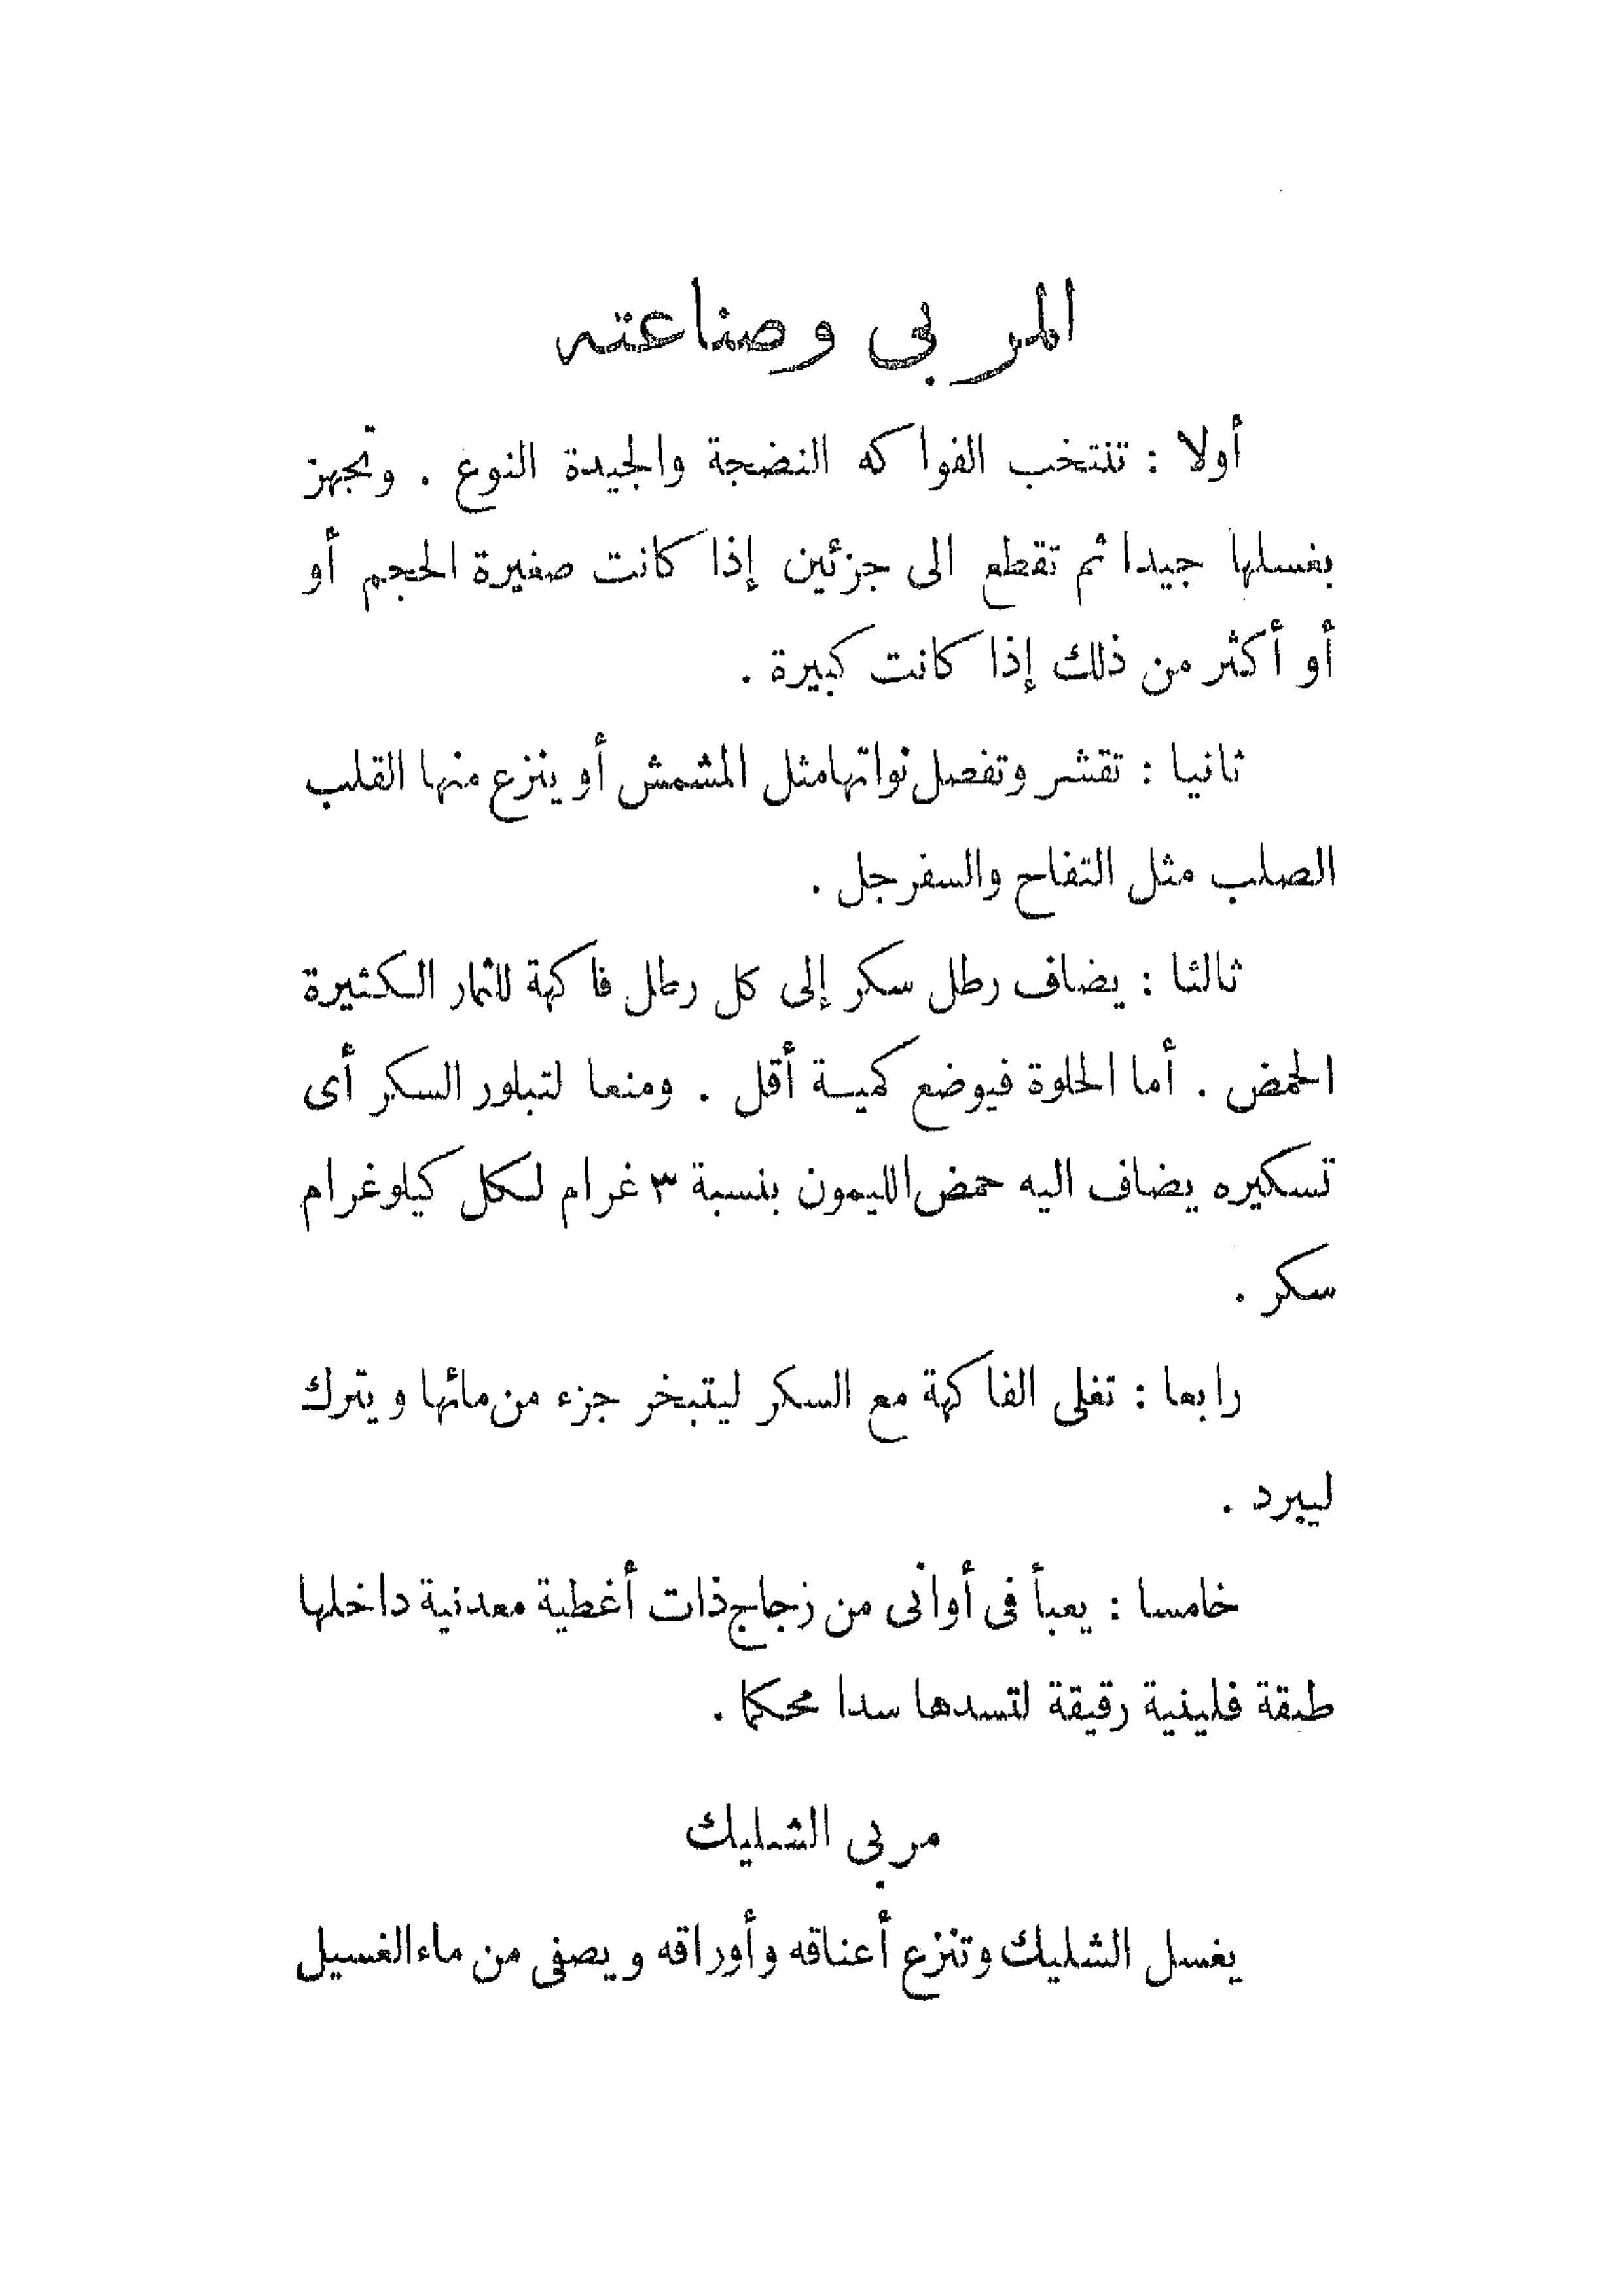 المربى وصناعته
أولا : تنتخب الفواكه النضجة والجيدة النوع . وتجهز
بغسلها جيدا ثم تقطع الى جزئين إذا كانت صغيرة الحجم أو
أو أكثر من ذلك إذا كانت كبيرة .
ثانيا : تقشر وتفصل نواتها مثل المشمش أو ينزع منها القلب
الصلب مثل التفاح والسفرجل .
ثالثا : يضاف رطل سكر إلى كل رطل فاكهة للثمار الكثيرة
الحمض . أما الحلوة فيوضع كمية أقل . ومنعا لتبلور السكر أى
تسكيره يضاف اليه حمض الليمون بنسبة ٣ غرام لكل كيلوغرام
سكر .
رابعا : تغلى الفاكهة مع السكر ليتبخر جزء من مائها ويترك
ليبرد .
خامسا : يعبأ فى أوانى من زجاج ذات أغطية معدنية داخلها
طبقة فلينية رقيقة لتسدها سدا محكما .
مربى الشليك
يغسل الشليك وتنزع أعناقه وأوراقه ويصفى من ماء الغسيل